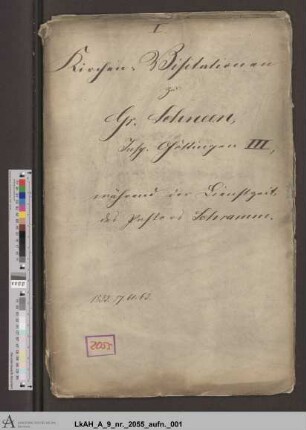 I.
Kirchen-Visitationen
zu
Gr. Schneen,
Insp. Göttingen III,
während der Dienstzeit
des Pastors Schramm.
1852. 57 u. 63.
2055
LkAH_A_9_nr._2055_aufn._001